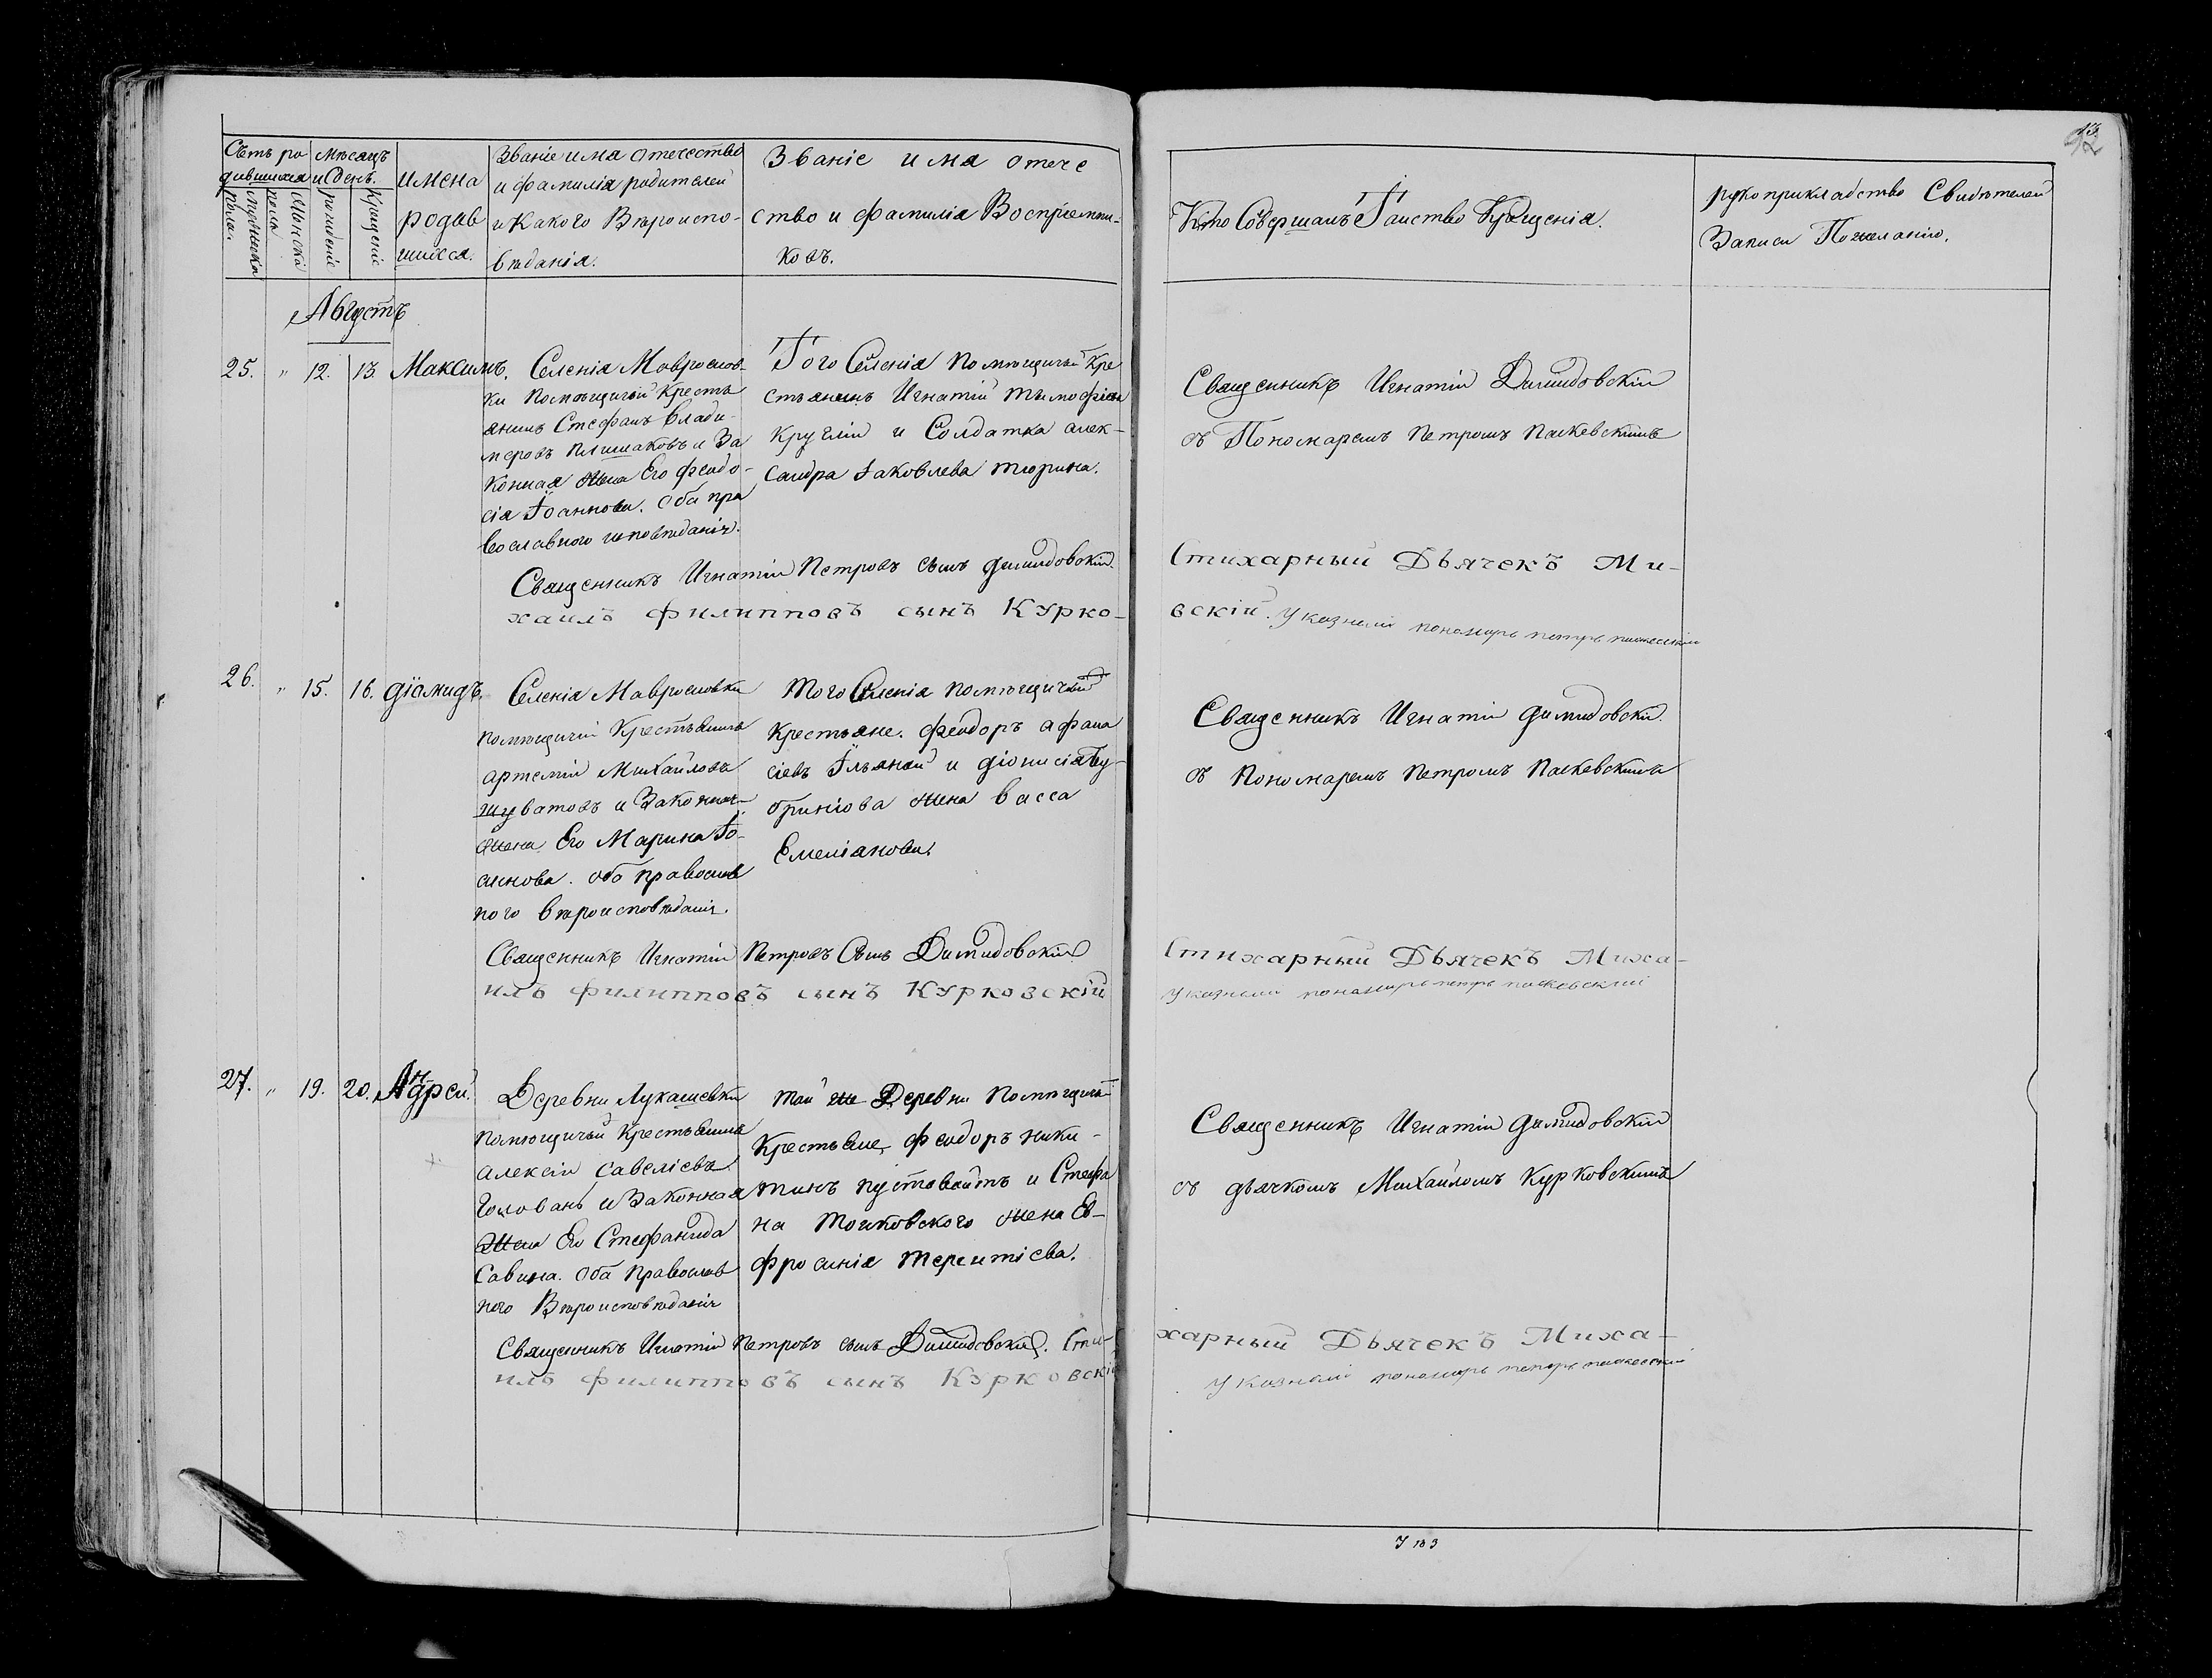 Счетъ ро
дившихся
мѣсяцъ
и день.
мужеска
пола.
женска
пола
рожденіе
крещеніе
имена
родив
шихся.
Званіе имя отечество
и фамилія родителей
и какого вѣроиспо-
вѣданія.
Званіе имя отече
ство и фамилія воспріемни-
ковъ.
Кто совершалъ таинство крещенія.
рукоприкладство свидѣтелей
записи по желанію.
Августъ
25. " 12. 13. Максимъ.
Селенія
помѣщичій кресть
янинъ Стефанъ Влади-
меровъ и за
конная жена его Феодо-
сія Іоаннова. Оба пра
вославного исповѣданія.
Того селенія помѣщичьи кре
стьянинъ Игнатій
Круглій и солдатка Алек-
сандра Іаковлева Тюрина.
Священникъ Игнатій Димидовскій
съ пономаремъ Петромъ Паскевскимъ
Священникъ Игнатій Петровъ сынъ Димидовскій. Стихарный Дьячекъ Ми-
хаилъ Филипповъ сынъ Курко- вскій. Указный пономарь петръ паскевскій
26. " 15. 16. Діомидъ.
Селенія
помѣщичій крестьянинъ
Артемій Михайловъ
и законная
жена его Марина Іо-
аннова. оба православ
ного вѣроисповѣданія.
Того селенія помѣщичьи
крестьяне. Феодоръ Афана
сіевъ и Діонисія
жена Васса
Емеліанова.
Священникъ Игнатій Димидовскій.
съ пономаремъ Петромъ Паскевскимъ
Священникъ Игнатій Петровъ сынъ Димидовскій Стихарный Дьячекъ Миха-
илъ Филипповъ сынъ Курковскій Указный пономарь петръ паскевскій
27. " 19. 20. Андрей.
Деревни Лукашевки
помѣщичьи крестьянинъ
Алексій Савеліевъ
Головань и законная
жена его Стефанида
Савина. Оба православ
ного вѣроисповѣданія
той же деревни помѣщичьи
крестьяне, Феодоръ Ники-
тинъ Пустовойтъ и Стефа
на жена Ев-
фросинія Терентіева.
Священникъ Игнатій Димидовскій
съ дьячкомъ Михаиломъ Курковскимъ
Священникъ Игнатій Петровъ сынъ Димидовскій. Сти- харный Дьячекъ Миха-
илъ Филипповъ сынъ Курковскій Указный пономарь петръ паскевскій